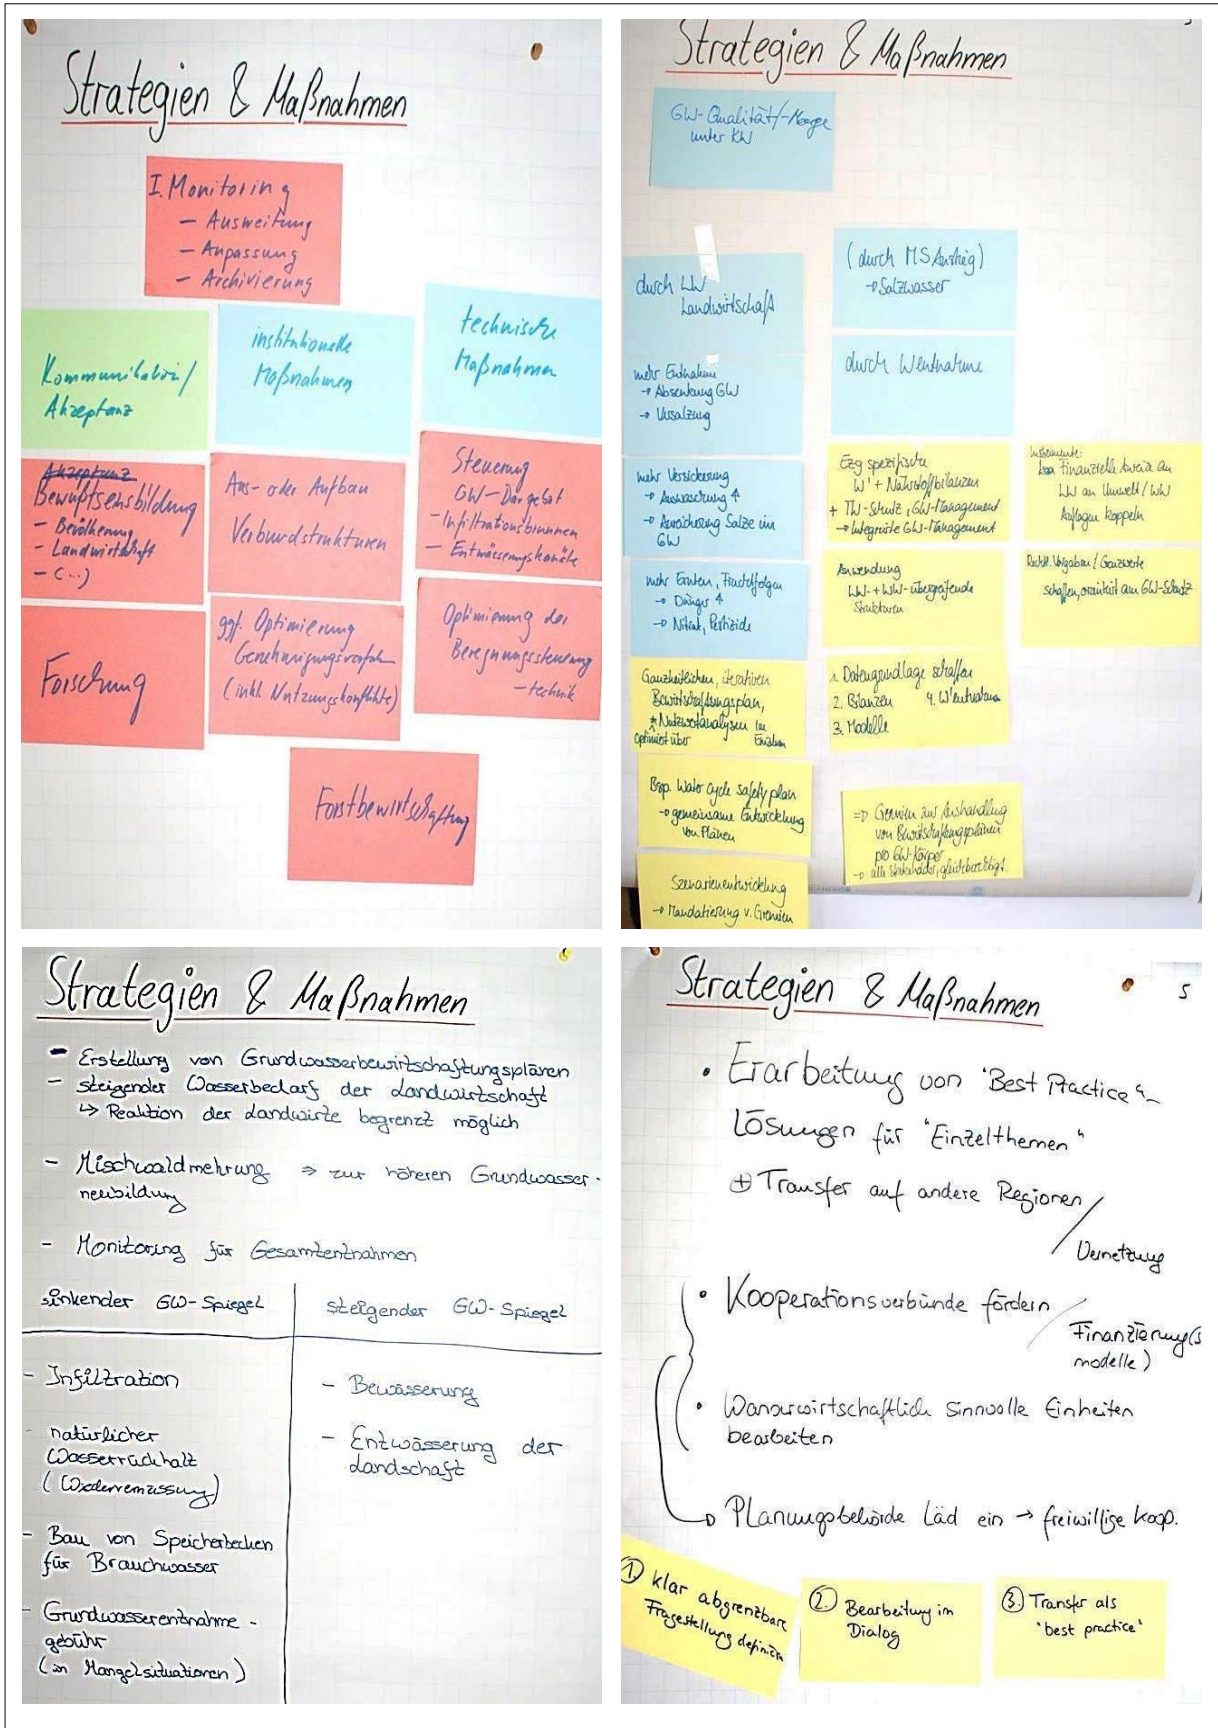 Strategien & Maßnahmen
I. Monitoring
- Ausweitung
- Anpassung
- Archivierung
Kommunikation/
Akzeptanz
institutionelle
Maßnahmen
technische
Maßnahmen
Akzeptanz
Bewußtseinsbildung
- Bevölkerung
- Landwirtschaft
- (...)
Aus- oder Aufbau
Verbundstrukturen
Steuerung
GW-Dargebot
- Infiltrationsbrunnen
- Entwässerungskanäle
Forschung
ggf. Optimierung
Genehmigungsverfahren
(inkl. Nutzungskonflikte)
Optimierung der
Beregnungssteuerung
- technik
Forstbewirtschaftung
Strategien & Maßnahmen
GW-Qualität/-Menge
unter KW
durch LW
Landwirtschaft
(durch MS Anstieg)
→ Salzwasser
mehr Entnahme
→ Absenkung GW
→ Versalzung
durch Wentnahme
mehr Versickerung
→ Auswaschung ↑
→ Anreicherung Salze im
GW
Ezg spezifische
W' + Nährstoffbilanzen
+ TW-Schutz, GW-Management
→ Integrierte GW-Management
Instrumente:
Finanzielle Anreize an
LW an Umwelt/WW
Auflagen koppeln
mehr Ernten, Fruchtfolgen
→ Dünger ↑
→ Nitrat, Pestizide
Anwendung
LW- + WW-übergreifende
Strukturen
Rechtl. Vorgaben/Grenzwerte
schaffen, orientiert am GW-Schutz
Ganzheitlichen, iterativen
Bewirtschaftungsplan,
* Nutzwertanalysen im
optimiert über
1. Datengrundlage schaffen
2. Bilanzen 4. W'entnahme
3. Modelle
Bsp. Water cycle safety plan
→ gemeinsame Entwicklung
von Plänen
=> Gremien zur Aushandlung
von Bewirtschaftungsplänen
pro GW-Körper
→ alle Stakeholder, gleichberechtigt.
Szenarienentwicklung
→ Mandatierung v. Gremien
Strategien & Maßnahmen
- Erstellung von Grundwasserbewirtschaftungsplänen
- steigender Wasserbedarf der Landwirtschaft
↳ Reaktion der Landwirte begrenzt möglich
- Mischwaldmehrung ⇒ zur höheren Grundwasser-
neubildung
- Monitoring für Gesamtentnahmen
sinkender GW-Spiegel
steigender GW-Spiegel
- Infiltration
- natürlicher
Wasserrückhalt
(Wiedervernässung)
- Bau von Speicherbecken
für Brauchwasser
- Grundwasserentnahme-
gebühr
(in Mangelsituationen)
- Bewässerung
- Entwässerung der
Landschaft
Strategien & Maßnahmen
5
• Erarbeitung von "Best Practice"-
Lösungen für "Einzelthemen"
⊕ Transfer auf andere Regionen /
Vernetzung
• Kooperationsverbünde fördern /
Finanzierung(s
modelle)
• Wasserwirtschaftlich sinnvolle Einheiten
bearbeiten
→ Planungsbehörde läd ein → freiwillige Koop.
① klar abgrenzbare
Fragestellung definieren
② Bearbeitung im
Dialog
③ Transfer als
"best practice"